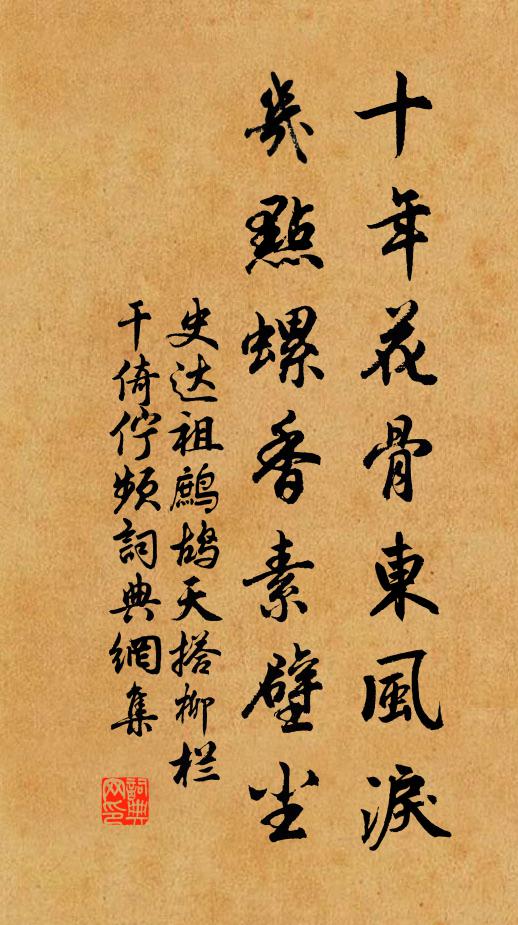 十年花骨東風淚
幾點螺香素壁尘
史达祖鷓鴣天搭柳栏
干倚伫频詞典網集
詞典網印